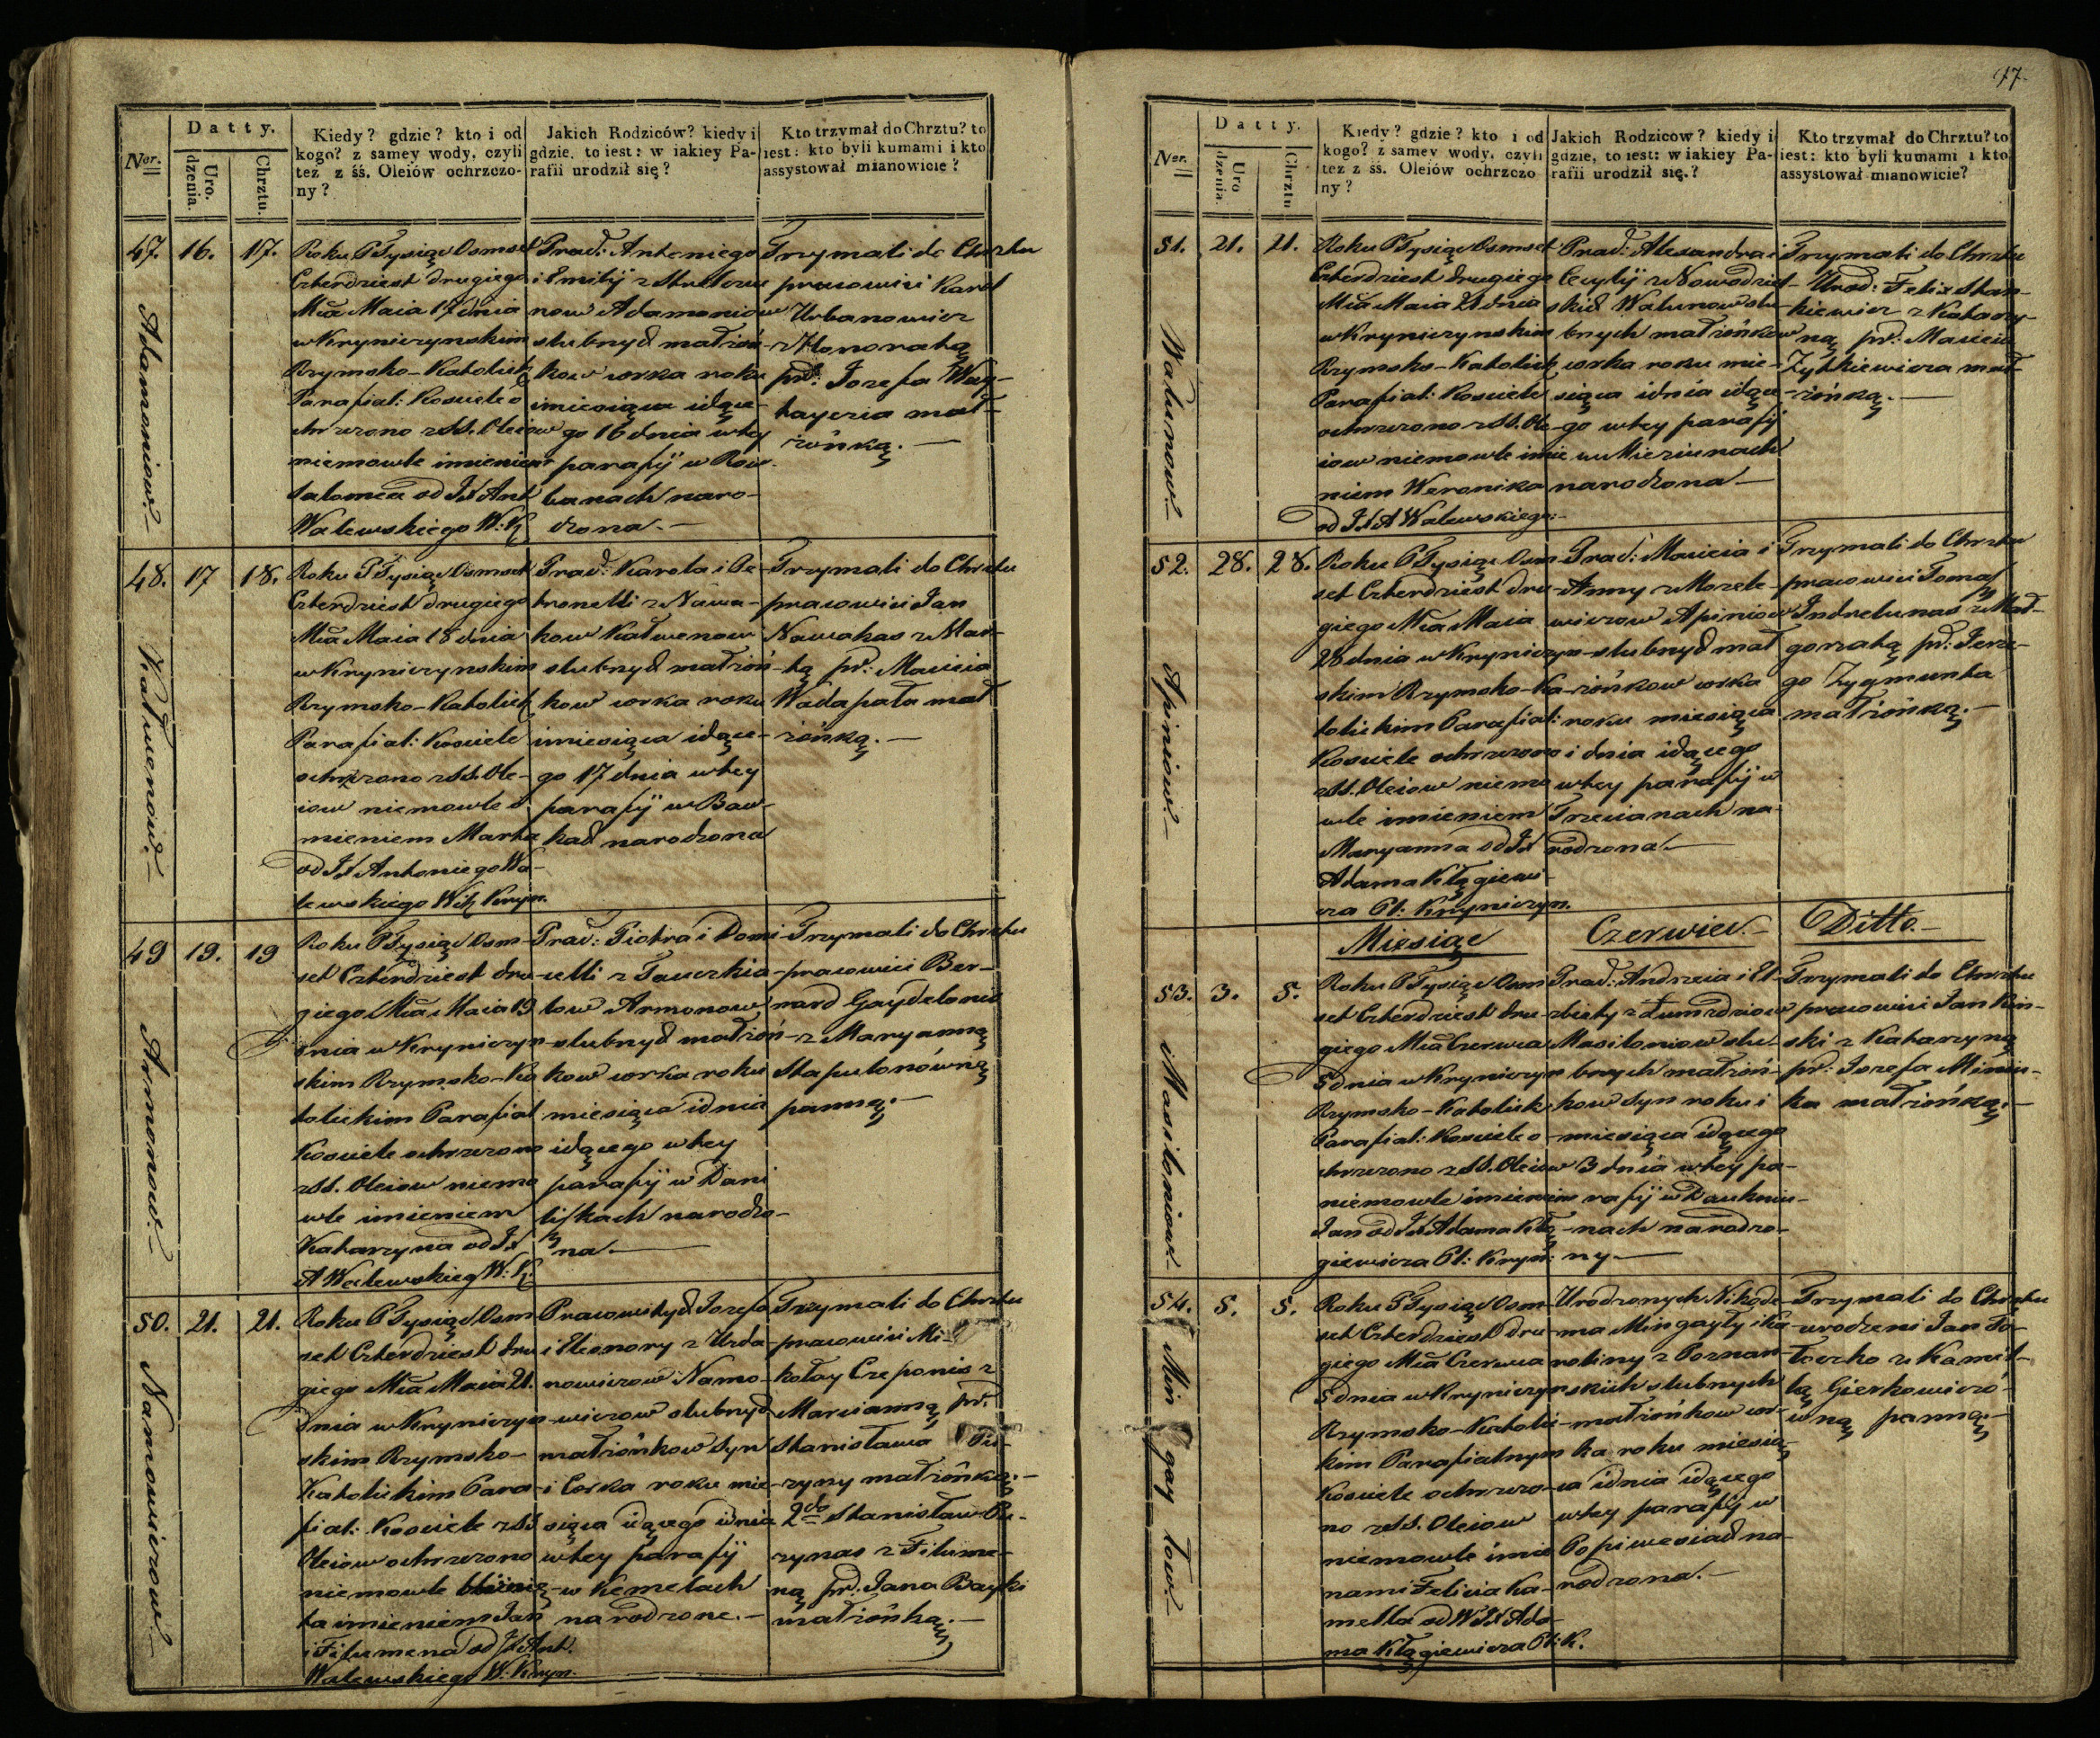 Ner.
Datty.
Urodzenia.
Chrztu.
Kiedy? gdzie? kto i od
kogo? z samey wody, czyli
tez z śś. Oleiów ochrzczo-
ny?
Jakich Rodziców? kiedy i
gdzie, to iest: w iakiey Pa-
rafii urodził się?
Kto trzymał do Chrztu? to
iest: kto byli kumami i kto
assystował mianowicie?
47. 16. 17.
Adamoniow.
Roku P Tysiąc Osmset
Czterdziest drugiego
Mca Maia 17 dnia
w Krynieczynskim
Rzymsko-Katolick
Parafial: Kosciele o
chrzczono z SS. Oleiow
niemowle imieniem
Salomea od JX Ant
Walewskiego W: K
Prac: Antoniego
i Emilij z
now Adamoniow
slubnych małżoń-
kow corka roku
i miesiąca idące-
go 16 dnia w tey
parafij w Row-
banach naro-
dzona.
Trzymali do Chrztu
pracowici Karol
Urbanowicz
z Honoratą
pr: Jozefa Way-
tayczia mał-
żonką.
48. 17 18.
Katwenow.
Roku P Tysiąc Osmset
Czterdziest drugiego
Mca Maia 18 dnia
w Krynieczynskim
Rzymsko-Katolick
Parafial: Kosciele
ochrzczono z SS. Ole-
iow niemowle i
mieniem Marta
od JX Antoniego Wa-
lewskiego Wik Kryn.
Prac: Karola i Pe-
tronelli z Nawa-
kow Katwenow
slubnych małżoń-
kow corka roku
i miesiąca idące-
go 17 dnia w tey
parafij w Baw-
kach narodzona
Trzymali do Chrztu
pracowici Jan
Nawakas z Mar-
tą pr: Macieia
Wadapała mał
żonką.
49 19. 19
Armonow.
Roku P Tysiąc Osm-
set Czterdziest dru-
giego Mca Maia 19
dnia w Krynieczyn
skim Rzymsko-Ka
tolickim Parafial
Kosciele ochrzczono
z SS. Oleiow niemo
wle imieniem
Katarzyna od JX
A Walewskieg W: K:
Prac: Piotra i Domi-
celli z Tauczkia-
low Armonow
slubnych małżoń-
kow corka roku
miesiąca i dnia
idącego w tey
parafij w Dani
liszkach narodzo-
na.
Trzymali do Chrztu
pracowici Ber-
nard Gaydelonis
z Maryanną
Stapulonówną
panną.
50. 21. 21.
Namowiczow.
Roku P Tysiąc Osm
set Czterdziest dru
giego Mca Maia 21.
dnia w Krynieczyn
skim Rzymsko-
Katolickim Para-
fial: Kosciele z SS
Oleiow ochrzczono
niemowle bliznię-
ta imieniem Jan
i Filumena od JX Ant.
Walewskiego W. Kryn.
Pracowitych Jozefa
i Eleonory z Urda-
nowiczow Namo-
wiczow slubnych
małżonkow syn
i Corka roku mie-
siąca idącego i dnia
w tey parafij
w Kemelach
narodzone.
Trzymali do Chrztu
pracowici Mi-
kołay Czeponis z
Marcianną pr.
Stanisława
ryny małżonką.
2do Stanisław
rynas z Filume-
ną pr: Jana Bayki
małżonką.
47.
Ner.
Datty.
Urodzenia.
Chrztu
Kiedy? gdzie? kto i od
kogo? z samey wody, czyli
tez z śś. Oleiów ochrzczo
ny?
Jakich Rodzicow? kiedy i
gdzie, to iest: w iakiey Pa-
rafii urodził się?
Kto trzymał do Chrztu? to
iest: kto byli kumami i kto
assystował mianowicie?
51. 21. 21.
Watunow.
Roku P Tysiąc Osmset
Czterdziest drugiego
Mca Maia 21 dnia
w Krynieczynskim
Rzymsko-Katolick
Parafial: Kosciele
ochrzczono z SS. Ole-
iow niemowle imie
niem Weronika
od JX A Walewskiego.
Prac: Alexandra i
Cecylij z Nowodziel-
skich Watunow slu-
bnych małżonkow
corka roku mie-
siąca i dnia idące-
go w tey parafij
w Miciunach
narodzona
Trzymali do Chrztu
Urod: Felix Stan-
kiewicz z Katarzy-
ną pr: Macieia
Zytkiewicza mał-
żonką.
52. 28. 28.
Apiniow.
Roku P Tysiąc Osm-
set Czterdziest dru-
giego Mca Maia
28 dnia w Krynieczyn-
skim Rzymsko-Ka-
tolickim Parafial:
Kosciele ochrzczono
z SS. Oleiow niemo
wle imieniem
Maryanna od JX
Adama Kłągiewi-
cza Pl: Krynieczyn.
Prac: Macieia i
Anny z Mozele-
wiczow Apiniow
slubnych mał
żonkow corka
roku miesiąca
i dnia idącego
w tey parafij w
Trecianach na-
rodzona.
Trzymali do Chrztu
pracowici Tomasz
Indrelunas z Mał-
gorzatą pr: Jerze-
go Zygmunta
małżonką.
Miesiąc Czerwiec. Ditto.
53. 3. 5.
Masiloniow.
Roku P Tysiąc Osm
set Czterdziest dru-
giego Mca Czerwca
5 dnia w Krynieczyn
Rzymsko-Katolick
Parafial: Kosciele o-
chrzczono z SS. Oleiow
niemowle imieniem
Jan od JX Adama Kłą-
giewicza Pl: Kryn:
Prac: Andrzeia i El-
zbiety z Łumzdziow
Masiloniow slu-
bnych małżoń-
kow syn roku i
miesiąca idącego
3 dnia w tey pa-
rafij w Daukniu-
nach narodzo-
ny.
Trzymali do Chrztu
pracowici Jan Rin-
ski z Katarzyną
pr: Jozefa Miniu-
ka małżonką.
54. 5. 5.
Mingayłow.
Roku P Tysiąc Osm-
set Czterdziest dru-
giego Mca Czerwca
5 dnia w Krynieczyn
Rzymsko-Katolic-
kim Parafialnym
Kosciele ochrzczo-
no z SS. Oleiow
niemowle imio
nami Felicia Ka-
mella od WJX Ada-
ma Kłągiewicza Pl: K.
Urodzonych Nikode-
ma Mingayły i Ka-
roliny z Poznan-
skich slubnych
małżonkow cor-
ka roku miesią-
ca i dnia idącego
w tey parafij w
Popiwesiach na-
rodzona.
Trzymali do Chrztu
urodzeni Jan Ło-
łoczko z Kamil-
lą Gierkowiczó-
wną panną.